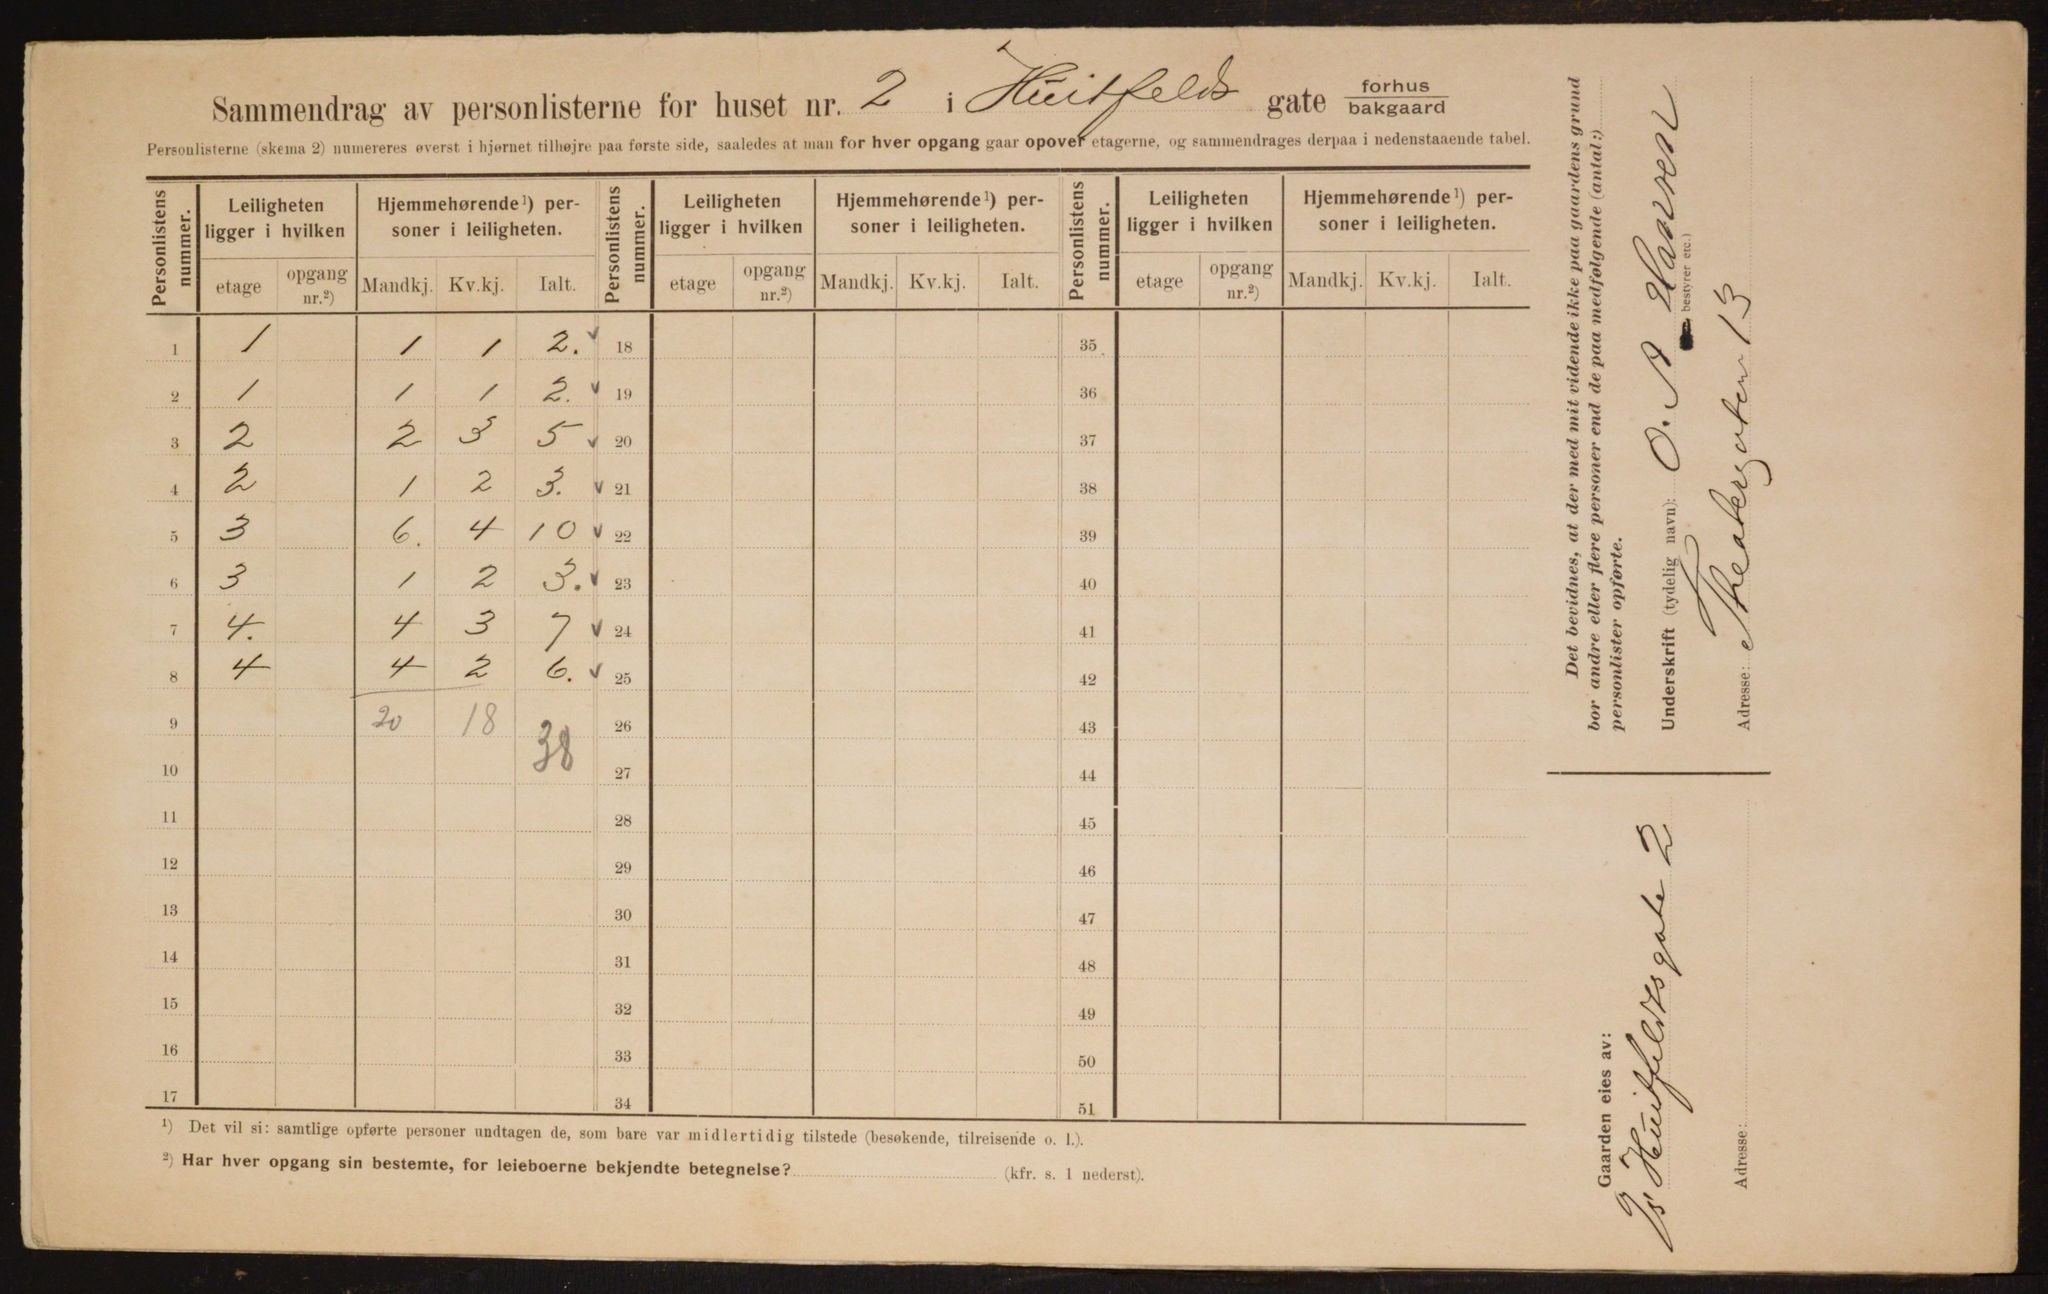 Sammendrag av personlisterne for huset nr. 2 i Huitfelds gate forhus bakgaard
Personlisterne (skema 2) numereres øverst i hjørnet tilhøjre paa første side, saaledes at man for hver opgang gaar opover etagerne, og sammendrages derpaa i nedenstaaende tabel.
Personlistens nummer. Leiligheten ligger i hvilken Hjemmehørende¹) personer i leiligheten. Personlistens nummer. Leiligheten ligger i hvilken Hjemmehørende¹) personer i leiligheten. Personlistens nummer. Leiligheten ligger i hvilken Hjemmehørende¹) personer i leiligheten.
etage opgang nr.²) Mandkj. Kv.kj. Ialt. etage opgang nr.²) Mandkj. Kv.kj. Ialt. etage opgang nr.²) Mandkj. Kv.kj. Ialt.
1 1 1 1 2. 18 35
2 1 1 1 2. 19 36
3 2 2 3 5 20 37
4 2 1 2 3. 21 38
5 3 6. 4 10 22 39
6 3 1 2 3. 23 40
7 4. 4 3 7 24 41
8 4 4 2 6. 25 42
9 20 18 38 26 43
10 27 44
11 28 45
12 29 46
13 30 47
14 31 48
15 32 49
16 33 50
17 34 51
¹) Det vil si: samtlige opførte personer undtagen de, som bare var midlertidig tilstede (besøkende, tilreisende o. l.).
²) Har hver opgang sin bestemte, for leieboerne bekjendte betegnelse? (kfr. s. 1 nederst).
Det bevidnes, at der med mit vidende ikke paa gaardens grund
bor andre eller flere personer end de paa medfølgende (antal:)
personlister opførte.
Underskrift (tydelig navn): O. A Hansen
bestyrer etc.)
Adresse: Theatergaten 13
Gaarden eies av:
Huitfeldtsgate 2
Adresse: